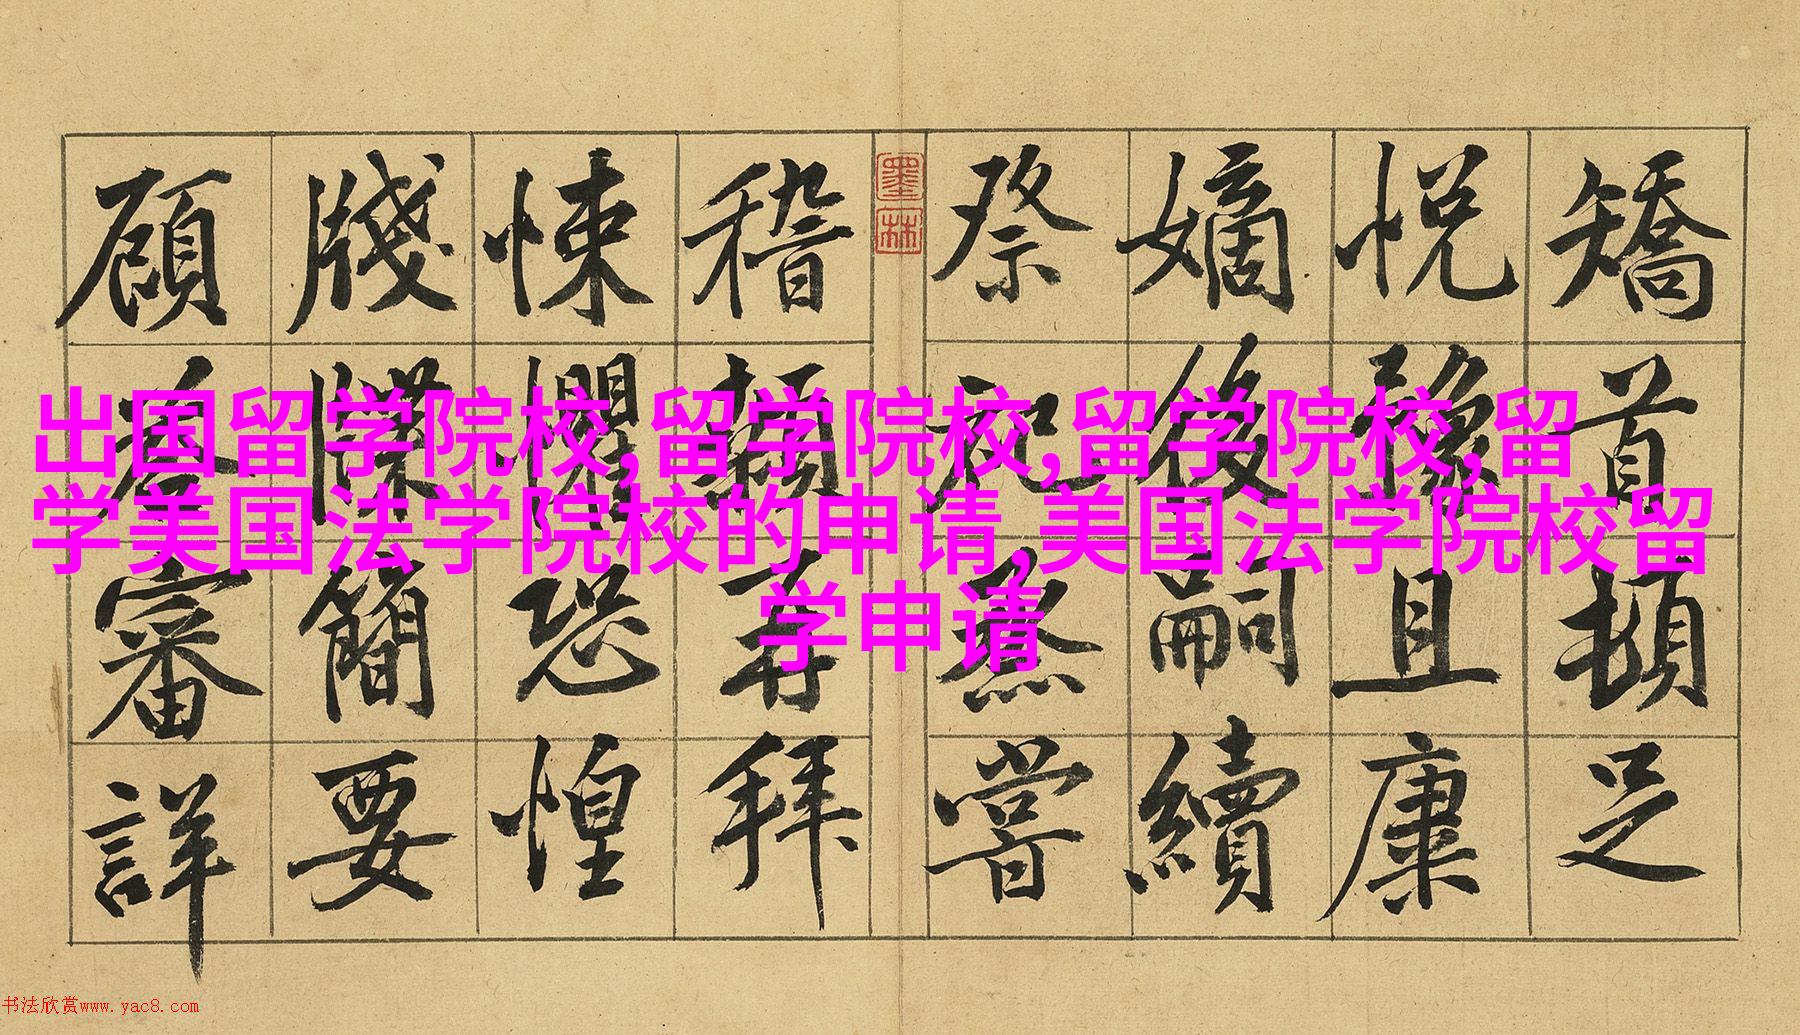 矯首頓足
悦豫且康
嫡後嗣續
祭祀烝嘗
墨林
稽顙再拜
悚懼恐惶
牋牒簡要
顧答審詳
出国留学院校,留学院校,留学院校,留
学美国法学院校的申请,美国法学院校留
学申请
书法欣赏www.yac8.com